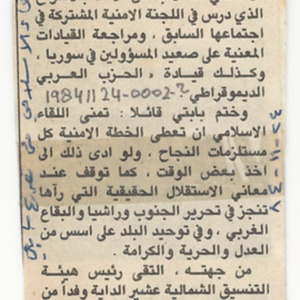 الذي درس في اللجنة الامنية المشتركة في
اجتماعها السابق ، ومراجعة القيادات
المعنية على صعيد المسؤولين في سوريا ،
وكذلك قيادة « الحزب العربي
الديموقراطي
1984/124-0002-2
وختم بابتي قائلا : تمنى اللقاء
الاسلامي ان تعطى الخطة الامنية كل
مستلزمات النجاح ، ولو ادى ذلك الى
اخذ بعض الوقت ، كما توقف عند
معاني الاستقلال الحقيقية التي رآها
تنجز في تحرير الجنوب وراشيا والبقاع
الغربي ، وفي توحيد البلد على اسس من
العدل والحرية والكرامة .
من جهتـه ، التقى رئيس هيئـة
التنسيق الشمالية عشير الداية وفداً من